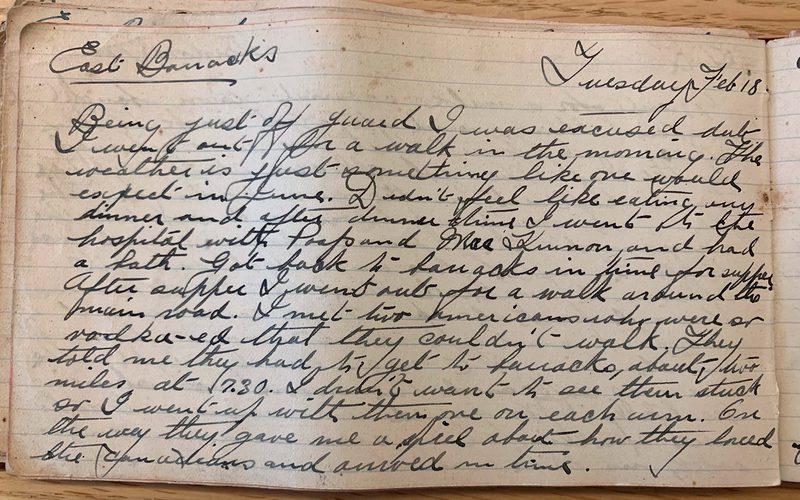 East Barracks
Tuesday, Feb 18.
Being just off guard I was excused duty
I went out for a walk in the morning. The
weather is just something like one would
expect in June. Didn't feel like eating any
dinner and after dinner time I went to the
hospital with and MacKinnon and had
a bath. Got back to barracks in time for supper
After supper I went out for a walk around the
main road. I met two Americans who were so
vodka-ed that they couldn't walk. They
told me they had to get to barracks, about two
miles at 7.30. I didn't want to see them stuck
so I went up with them one on each arm. On
the way they gave me a spiel about how they loved
the Canadians and arrived in time.